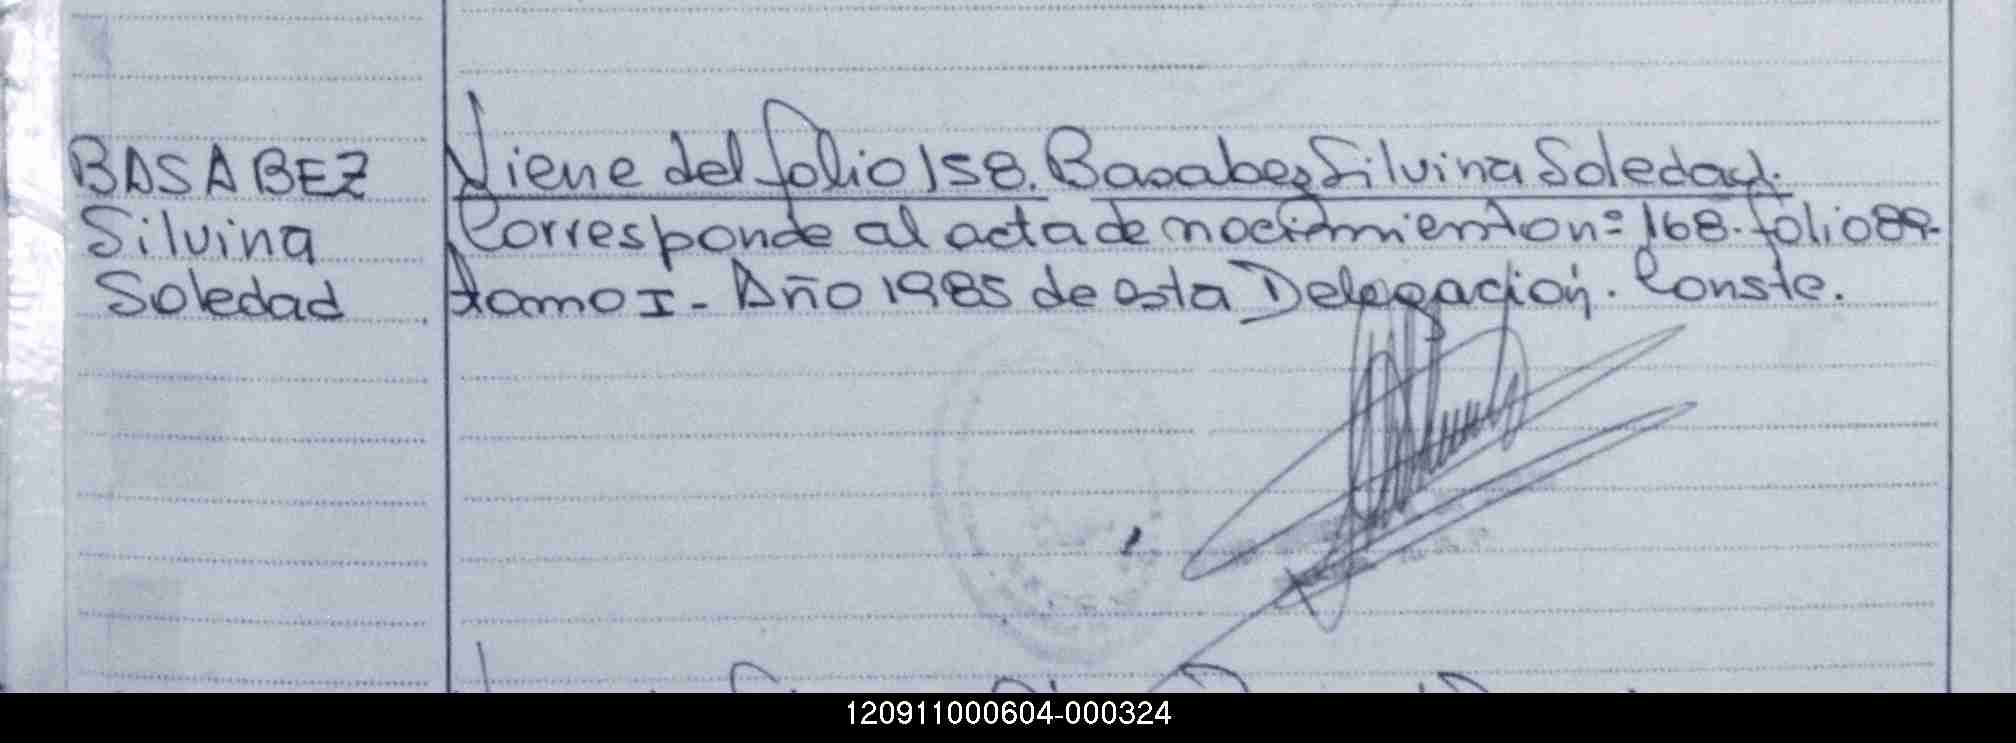 BASABEZ
Silvina
Soledad
Viene del folio 158. Basabez Silvina Soledad.
Corresponde al acta de nacimiento n= 168. folio 89-
tomo I - Año 1985 de esta Delegación. Conste.
120911000604-000324